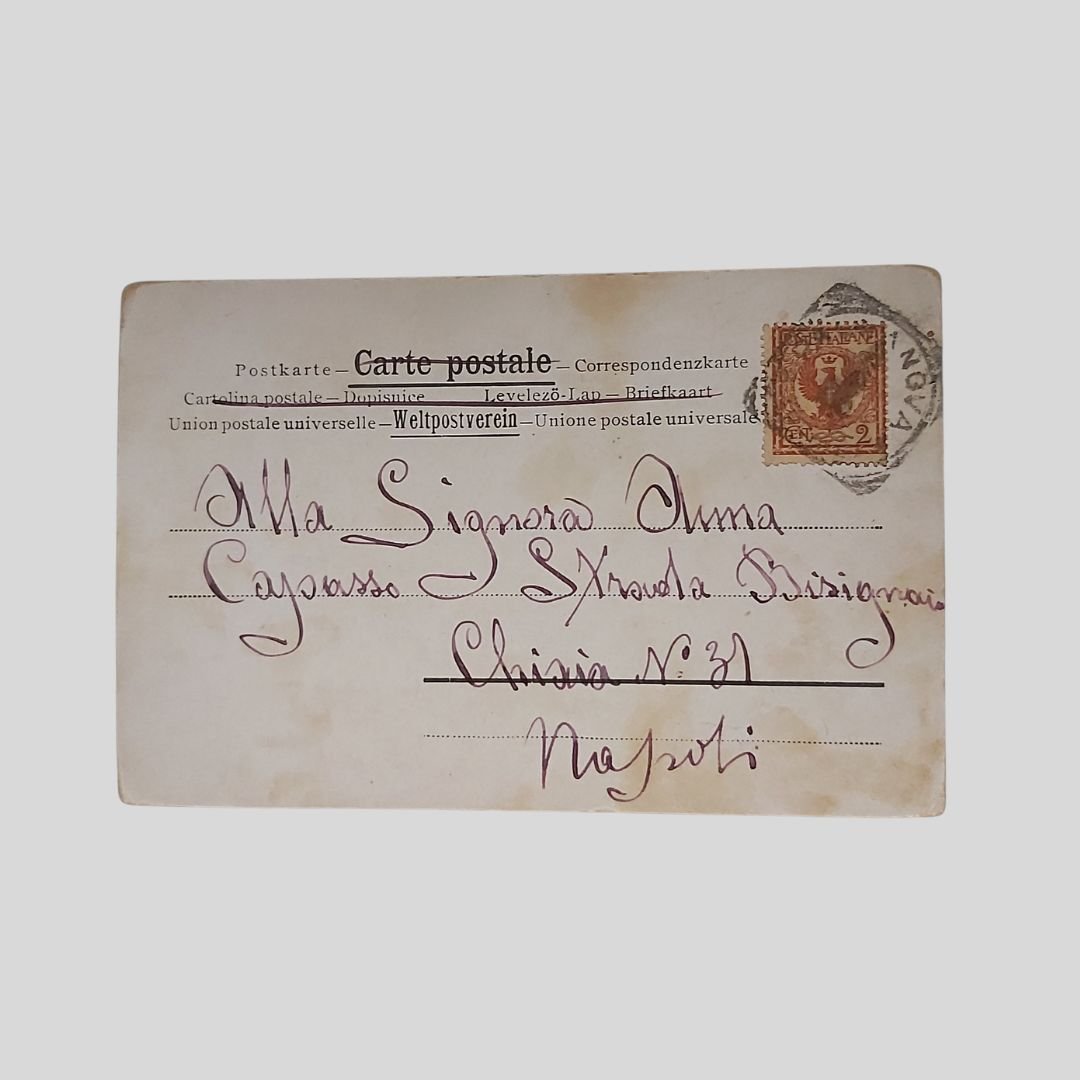 Postkarte – Carte postale – Correspondenzkarte
Cartolina postale – Dopisnice Levelező-Lap – Briefkaart
Union postale universelle – Weltpostverein – Unione postale universale
POSTE ITALIANE
CENT. 2
Alla Signora Anna
Capasso Strada
Chiaia Nº 31
Napoli